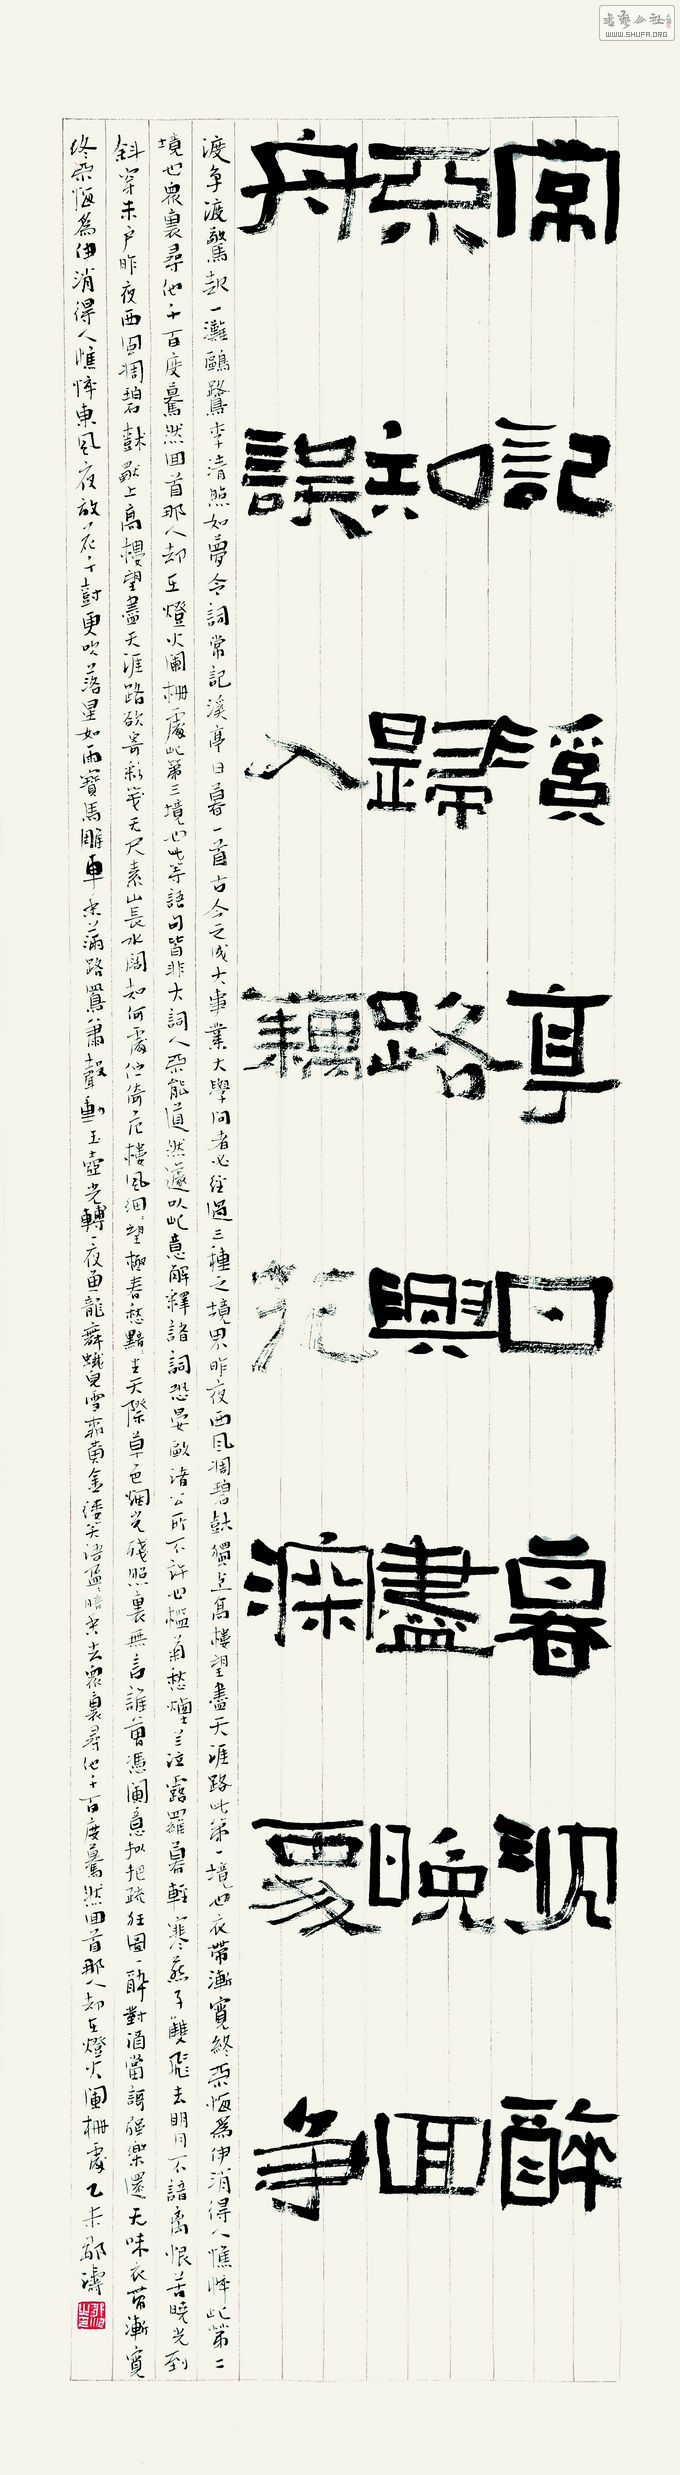 書藝公社
WWW.SHUFA.ORG
常記溪亭日暮沈醉
不知歸路興盡晚回
舟誤入藕花深處爭
渡爭渡驚起一灘鷗鷺李清照如夢令詞常記溪亭日暮一首古今之成大事業大學問者必經過三種之境界昨夜西風凋碧樹獨上高樓望盡天涯路此第一境也衣帶漸寬終不悔為伊消得人憔悴此第二
境也眾裏尋他千百度驀然回首那人却在燈火闌珊處此第三境也此等語句皆非大詞人不能道然遽以此意解釋諸詞恐晏歐諸公所不許也檻菊愁煙蘭泣露羅幕輕寒燕子雙飛去明月不諳離恨苦曉光到
斜穿朱戶昨夜西風凋碧樹獨上高樓望盡天涯路欲寄彩箋无尺素山長水闊知何處佇倚危樓風細細望極春愁黯黯生天際草色煙光殘照裏無言誰會憑闌意擬把疏狂圖一醉對酒當歌強樂還无味衣帶漸寬
終不悔為伊消得人憔悴東風夜放花千樹更吹落星如雨寶馬雕車香滿路鳳簫聲動玉壺光轉一夜魚龍舞蛾兒雪柳黃金縷笑語盈盈暗香去眾裏尋他千百度驀然回首那人却在燈火闌珊處乙未鄒濤